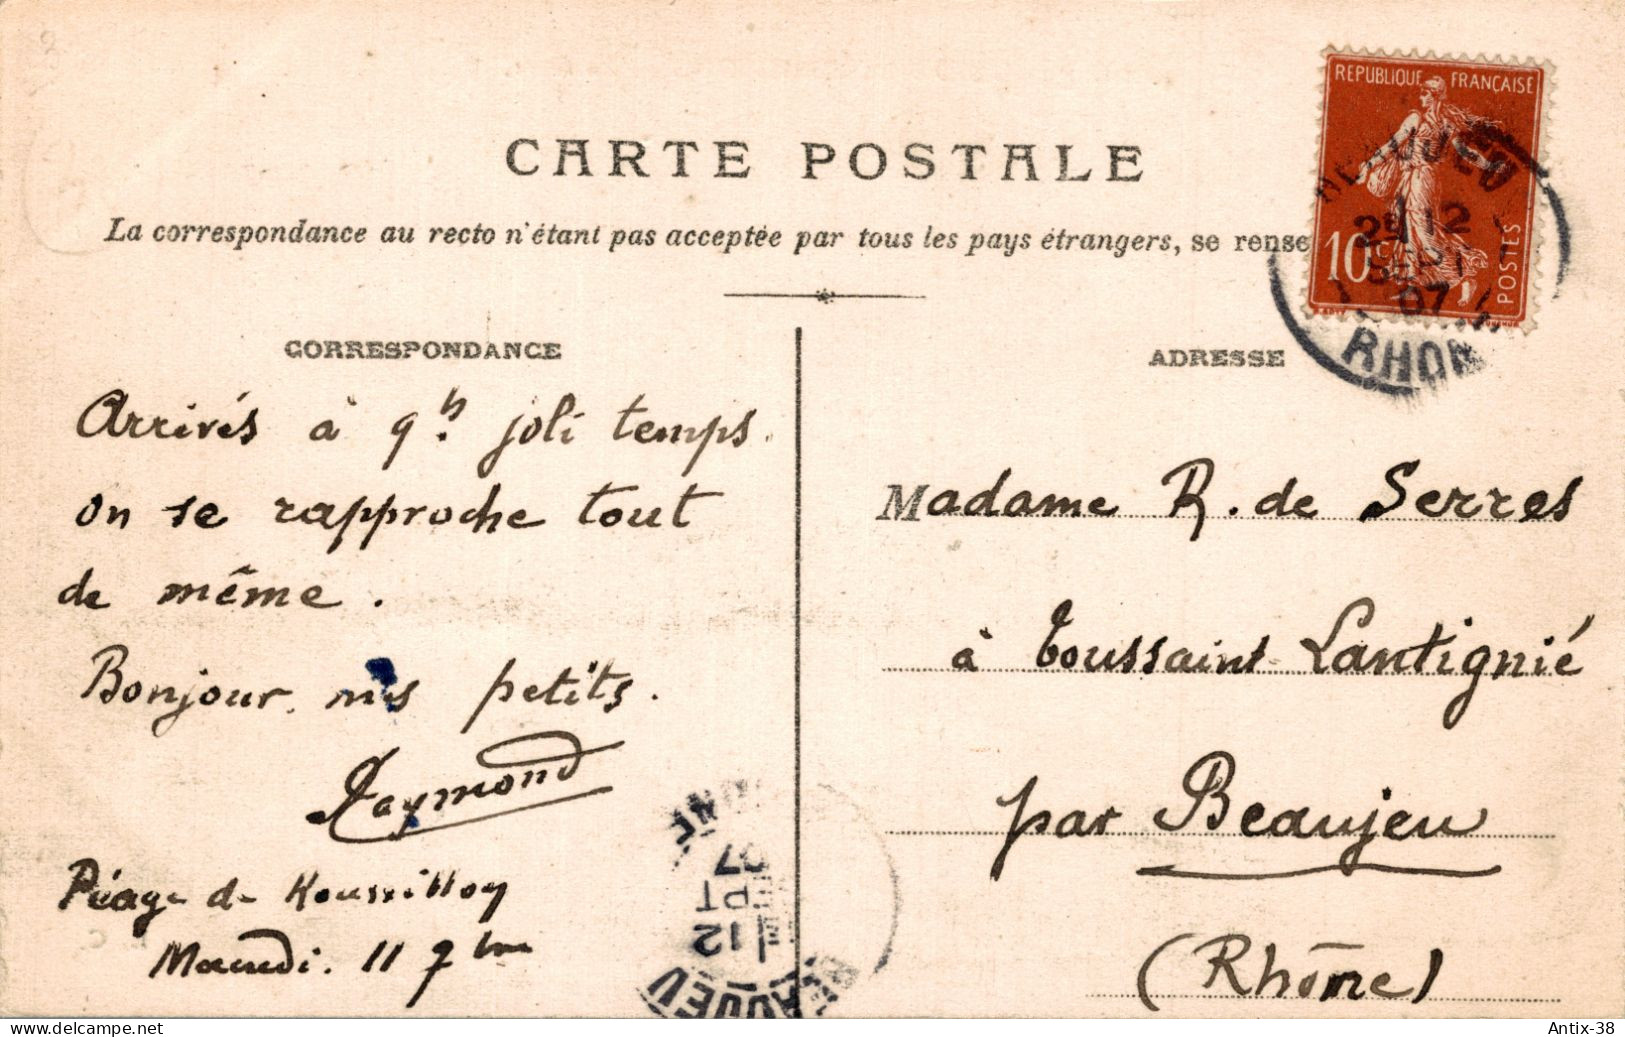 CARTE POSTALE
La correspondance au recto n'étant pas acceptée par tous les pays étrangers, se rense
REPUBLIQUE FRANÇAISE
10c
POSTES
BEAUJEU
12
SEPT
07
RHONE
CORRESPONDANCE
Arrivés à 9h. joli temps.
on se rapproche tout
de même.
Bonjour mes petits.
Raymond
Péage de Roussillon
Mardi. 11 7bre
ADRESSE
Madame R. de Serres
à Toussaint Lantignié
par Beaujeu
(Rhône)
BEAUJEU
12
SEPT
07
RHONE
Delcampe.net
Antix-38